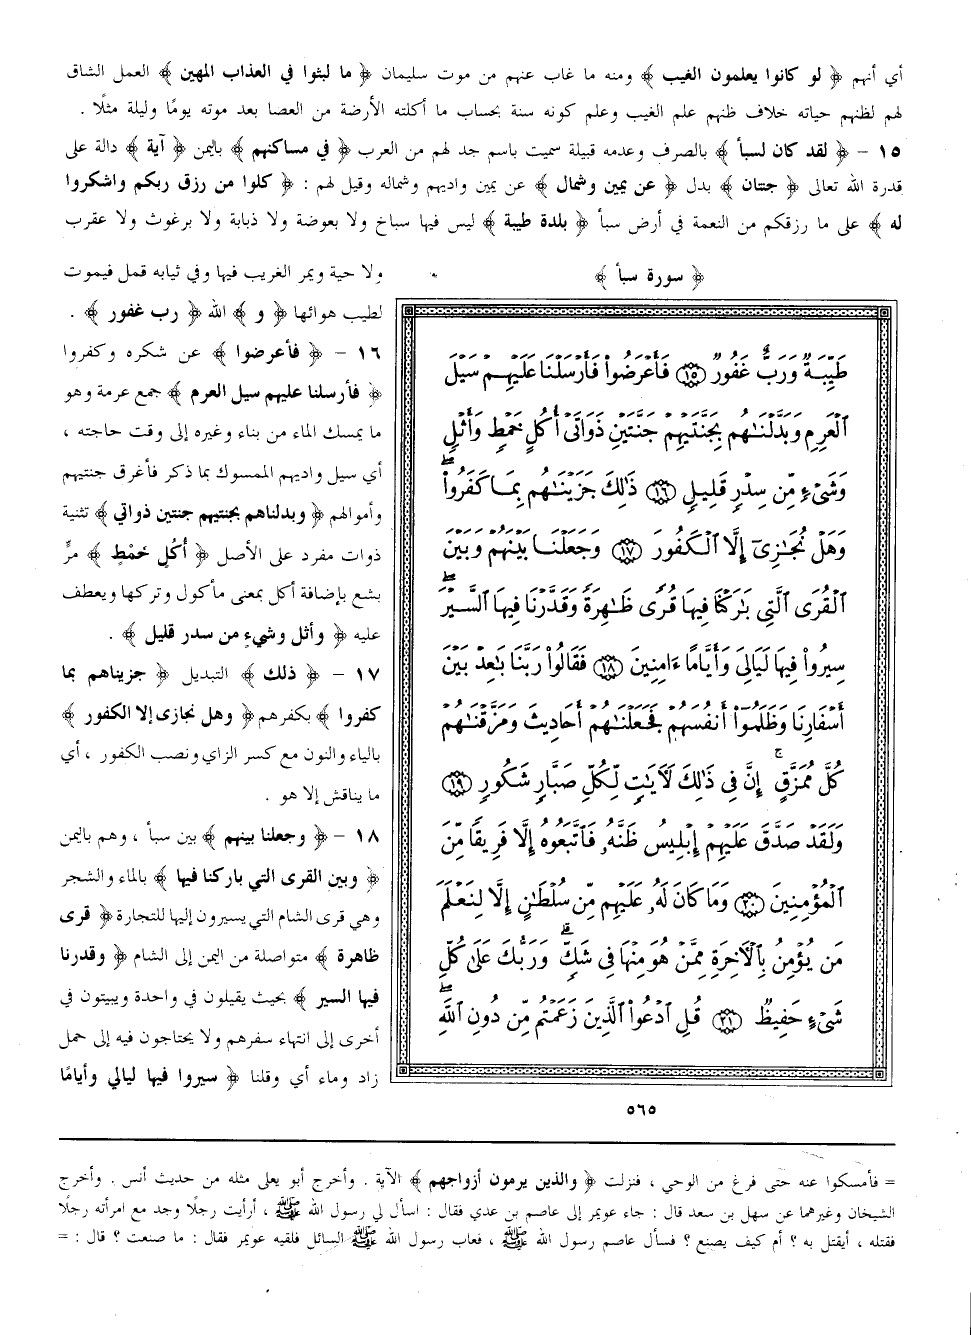 أي أنهم ﴿ لو كانوا يعلمون الغيب ﴾ ومنه ما غاب عنهم من موت سليمان ﴿ ما لبثوا في العذاب المهين ﴾ العمل الشاق
لهم لظنهم حياته خلاف ظنهم علم الغيب وعلم كونه سنة بحساب ما أكلته الأرضة من العصا بعد موته يومًا وليلة مثلًا .
١٥ – ﴿ لقد كان لسبأ ﴾ بالصرف وعدمه قبيلة سميت باسم جد لهم من العرب ﴿ في مساكنهم ﴾ باليمن ﴿ آية ﴾ دالة على
قدرة الله تعالى ﴿ جنتان ﴾ بدل ﴿ عن يمين وشمال ﴾ عن يمين واديهم وشماله وقيل لهم : ﴿ كلوا من رزق ربكم واشكروا
له ﴾ على ما رزقكم من النعمة في أرض سبأ ﴿ بلدة طيبة ﴾ ليس فيها سباخ ولا بعوضة ولا ذبابة ولا برغوث ولا عقرب
﴿ سورة سبأ ﴾
طَيِّبَةٌ وَرَبٌّ غَفُورٌ ١٥ فَأَعْرَضُوا۟ فَأَرْسَلْنَا عَلَيْهِمْ سَيْلَ
ٱلْعَرِمِ وَبَدَّلْنَٰهُم بِجَنَّتَيْهِمْ جَنَّتَيْنِ ذَوَاتَىْ أُكُلٍ خَمْطٍ وَأَثْلٍ
وَشَىْءٍ مِّن سِدْرٍ قَلِيلٍ ١٦ ذَٰلِكَ جَزَيْنَٰهُم بِمَا كَفَرُوا۟ۖ
وَهَلْ نُجَٰزِىٓ إِلَّا ٱلْكَفُورَ ١٧ وَجَعَلْنَا بَيْنَهُمْ وَبَيْنَ
ٱلْقُرَى ٱلَّتِى بَٰرَكْنَا فِيهَا قُرًى ظَٰهِرَةً وَقَدَّرْنَا فِيهَا ٱلسَّيْرَۖ
سِيرُوا۟ فِيهَا لَيَالِىَ وَأَيَّامًا ءَامِنِينَ ١٨ فَقَالُوا۟ رَبَّنَا بَٰعِدْ بَيْنَ
أَسْفَارِنَا وَظَلَمُوٓا۟ أَنفُسَهُمْ فَجَعَلْنَٰهُمْ أَحَادِيثَ وَمَزَّقْنَٰهُمْ
كُلَّ مُمَزَّقٍۚ إِنَّ فِى ذَٰلِكَ لَءَايَٰتٍ لِّكُلِّ صَبَّارٍ شَكُورٍ ١٩
وَلَقَدْ صَدَّقَ عَلَيْهِمْ إِبْلِيسُ ظَنَّهُۥ فَٱتَّبَعُوهُ إِلَّا فَرِيقًا مِّنَ
ٱلْمُؤْمِنِينَ ٢٠ وَمَا كَانَ لَهُۥ عَلَيْهِم مِّن سُلْطَٰنٍ إِلَّا لِنَعْلَمَ
مَن يُؤْمِنُ بِٱلْءَاخِرَةِ مِمَّنْ هُوَ مِنْهَا فِى شَكٍّۗ وَرَبُّكَ عَلَىٰ كُلِّ
شَىْءٍ حَفِيظٌ ٢١ قُلِ ٱدْعُوا۟ ٱلَّذِينَ زَعَمْتُم مِّن دُونِ ٱللَّهِۖ
٥٦٥
ولا حية ويمر الغريب فيها وفي ثيابه قمل فيموت
لطيب هوائها ﴿ و ﴾ الله ﴿ رب غفور ﴾ .
١٦ – ﴿ فأعرضوا ﴾ عن شكره وكفروا
﴿ فأرسلنا عليهم سيل العرم ﴾ جمع عرمة وهو
ما يمسك الماء من بناء وغيره إلى وقت حاجته ،
أي سيل واديهم الممسوك بما ذكر فأغرق جنتيهم
وأموالهم ﴿ وبدلناهم بجنتيهم جنتين ذواتي ﴾ تثنية
ذوات مفرد على الأصل ﴿ أُكُلٍ خمْطٍ ﴾ مرّ
بشع بإضافة أكل بمعنى مأكول وتركها ويعطف
عليه ﴿ وأثل وشيءٍ من سدر قليل ﴾ .
١٧ – ﴿ ذلك ﴾ التبديل ﴿ جزيناهم بما
كفروا ﴾ بكفرهم ﴿ وهل نجازى إلا الكفور ﴾
بالياء والنون مع كسر الزاي ونصب الكفور ، أي
ما يناقش إلا هو .
١٨ – ﴿ وجعلنا بينهم ﴾ بين سبأ ، وهم باليمن
﴿ وبين القرى التي باركنا فيها ﴾ بالماء والشجر
وهي قرى الشام التي يسيرون إليها للتجارة ﴿ قرى
ظاهرة ﴾ متواصلة من اليمن إلى الشام ﴿ وقدرنا
فيها السير ﴾ بحيث يقيلون في واحدة ويبيتون في
أخرى إلى انتهاء سفرهم ولا يحتاجون فيه إلى حمل
زاد وماء أي وقلنا ﴿ سيروا فيها ليالي وأيامًا
= فأمسكوا عنه حتى فرغ من الوحي ، فنزلت ﴿ والذين يرمون أزواجهم ﴾ الآية . وأخرج أبو يعلى مثله من حديث أنس . وأخرج
الشيخان وغيرهما عن سهل بن سعد قال : جاء عويمر إلى عاصم بن عدي فقال : اسأل لي رسول الله ﷺ ، أرأيت رجلًا وجد مع امرأته رجلًا
فقتله ، أيقتل به ؟ أم كيف يصنع ؟ فسأل عاصم رسول الله ﷺ ، فعاب رسول الله ﷺ السائل فلقيه عويمر فقال : ما صنعت ؟ قال : =